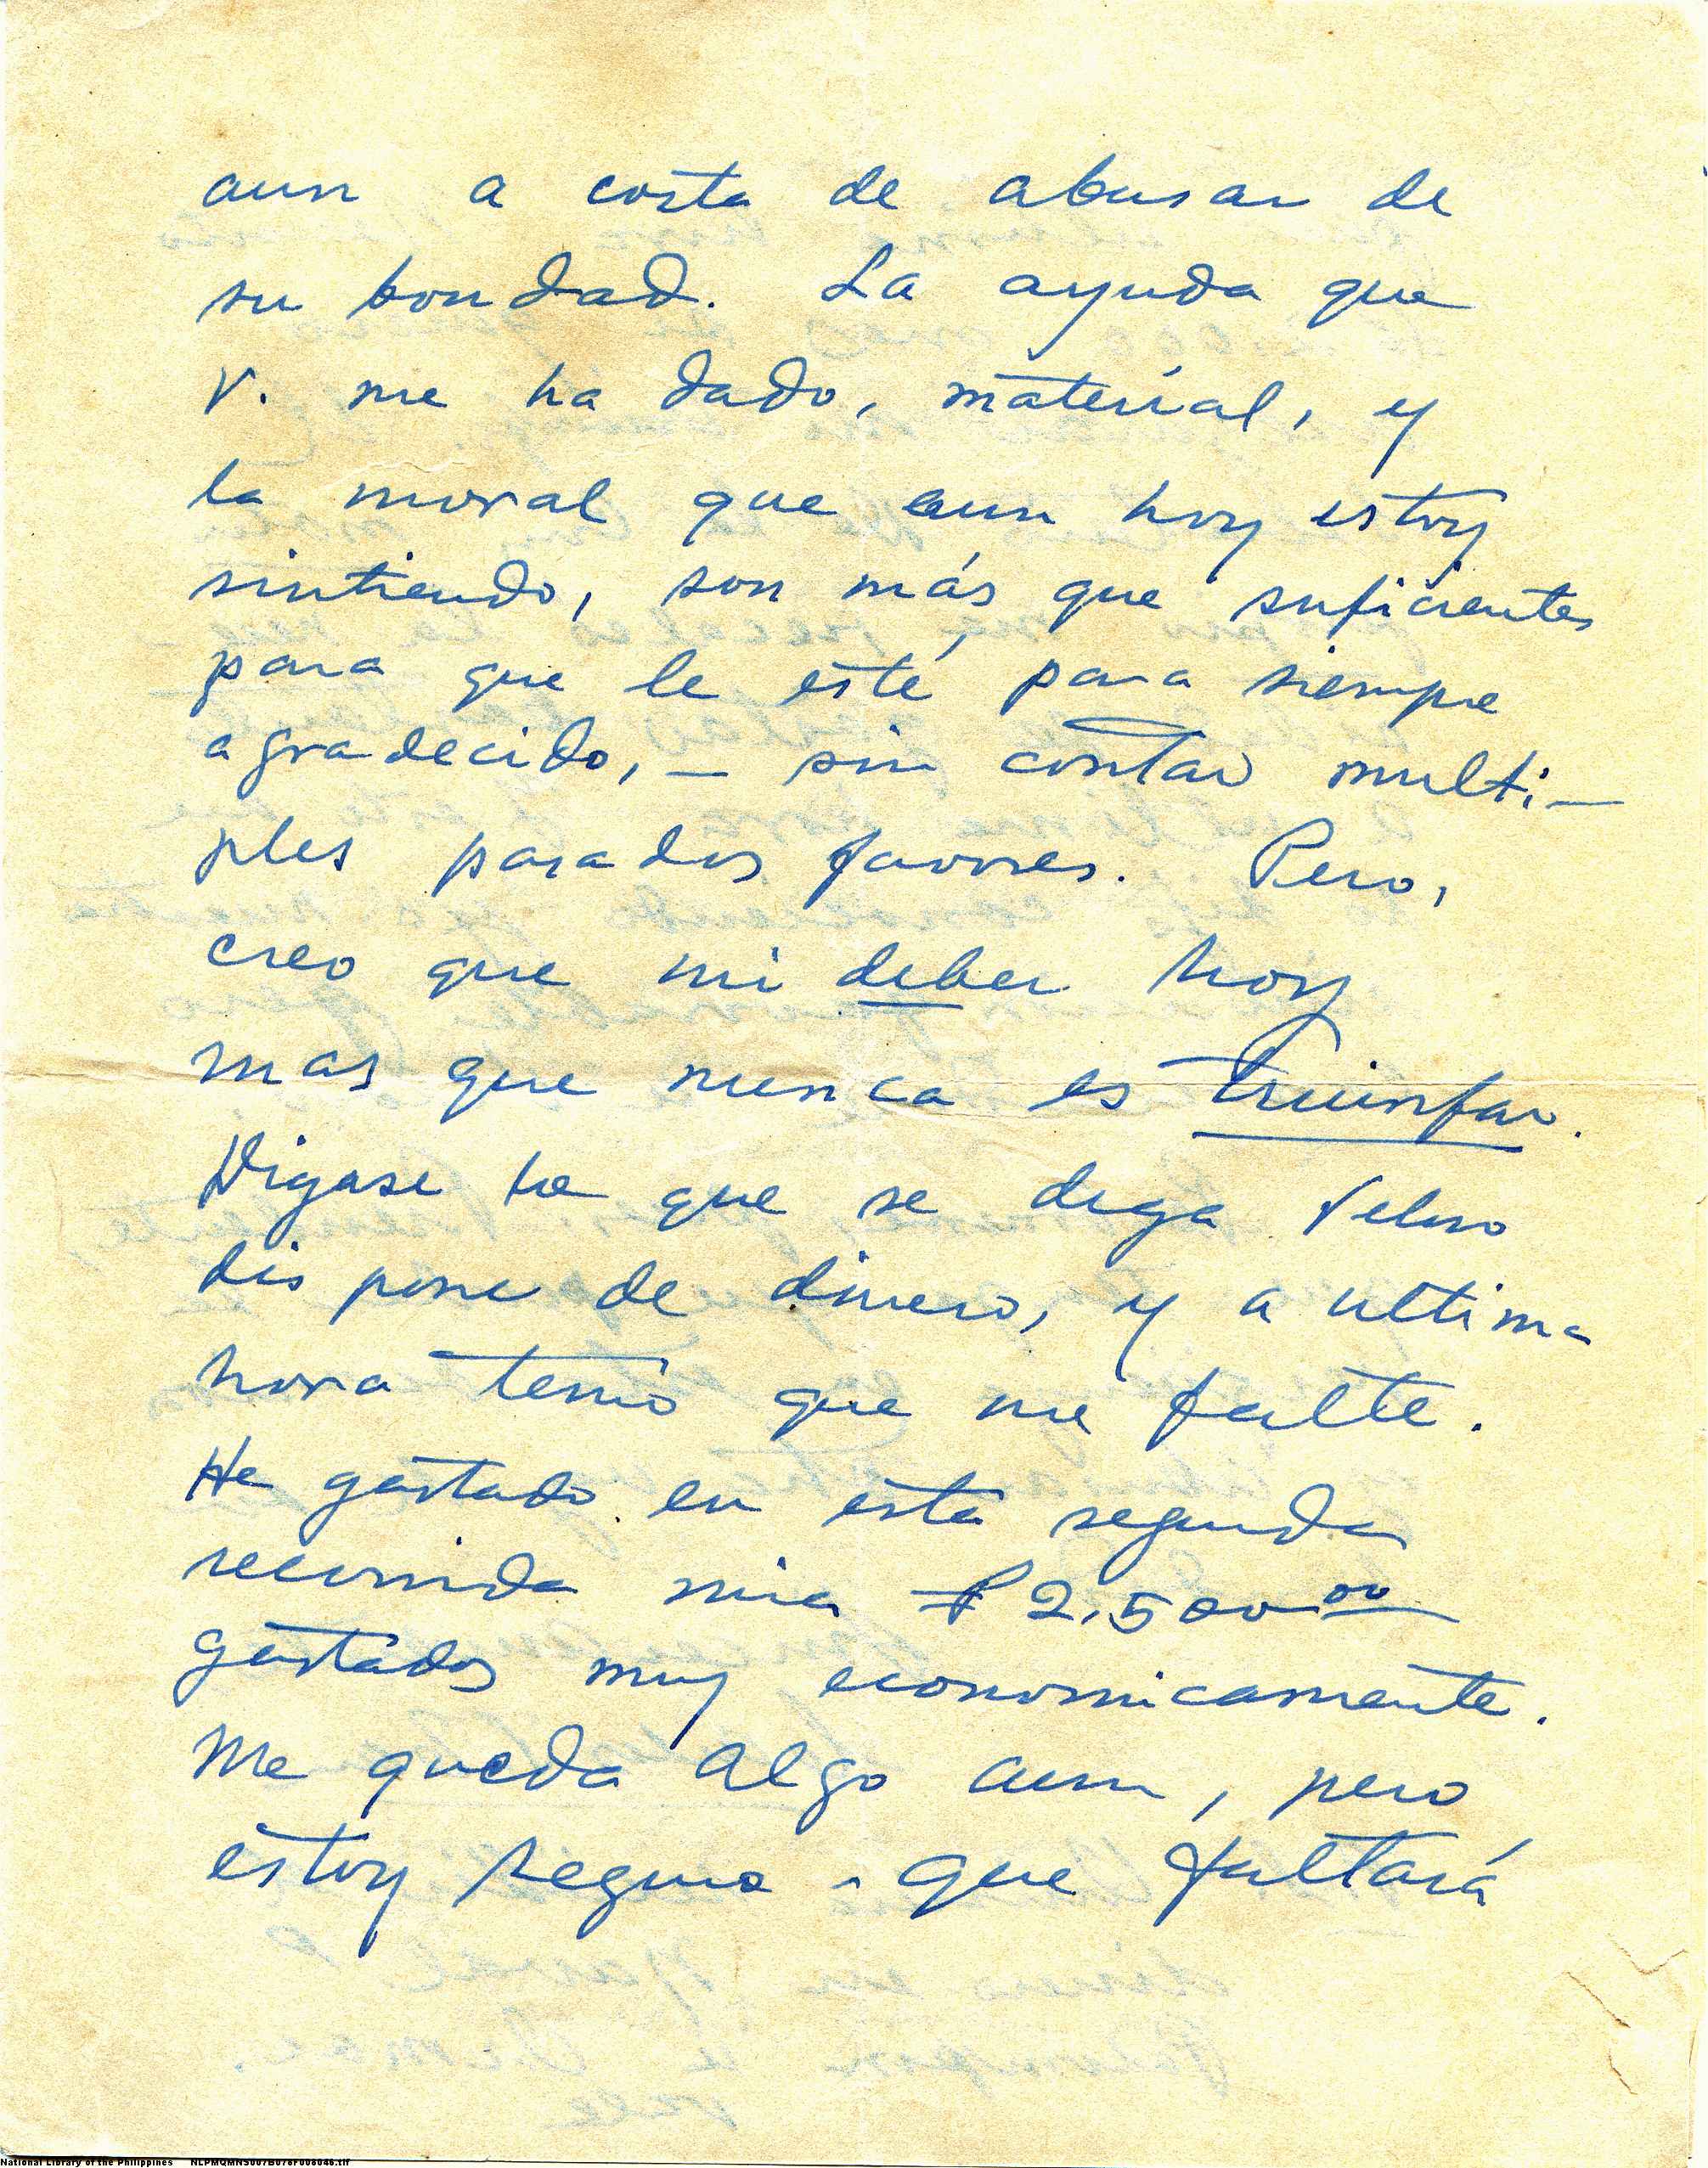 aun a costa de abusar de
su bondad. La ayuda que
V. me ha dado, material, y
la moral que aun hoy estoy
sintiendo, son más que suficientes
para que le esté para siempre
agradecido, — sin contar multi-
ples pasados favores. Pero,
creo que mi deber hoy
mas que nunca es triunfar.
Digase lo que se diga Veloso
dispone de dinero, y a ultima
hora temo que me falte.
He gastado en esta segunda
recorrida mia ₱ 2,500.00
gastados muy economicamente.
Me queda algo aun, pero
estoy seguro que faltará
National Library of the Philippines NLPMQMNS007B078F008046.tif